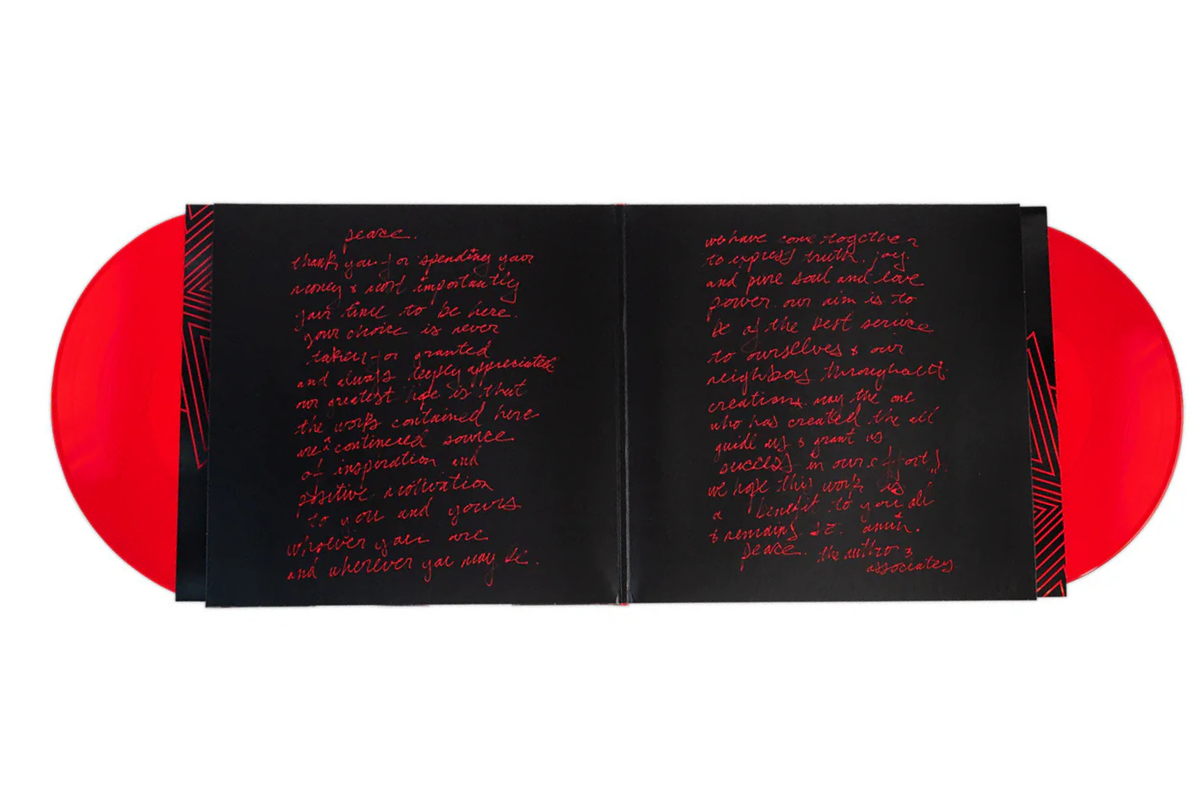 peace.
thank you for spending your
money & most importantly
your time to be here.
your choice is never
taken for granted
and always deeply appreciated.
our greatest hope is that
the works contained here
are a continued source
of inspiration and
positive motivation
to you and yours
whoever you are
and wherever you may be.
we have come together
to express truth. joy.
and pure soul and love
power. our aim is to
be of the best service
to ourselves & our
neighbors throughout
creation. may the one
who has created the all
guide us & grant us
success in our efforts.
we hope this work is
a benefit to you all
& remains so. amin.
peace. the author &
associates